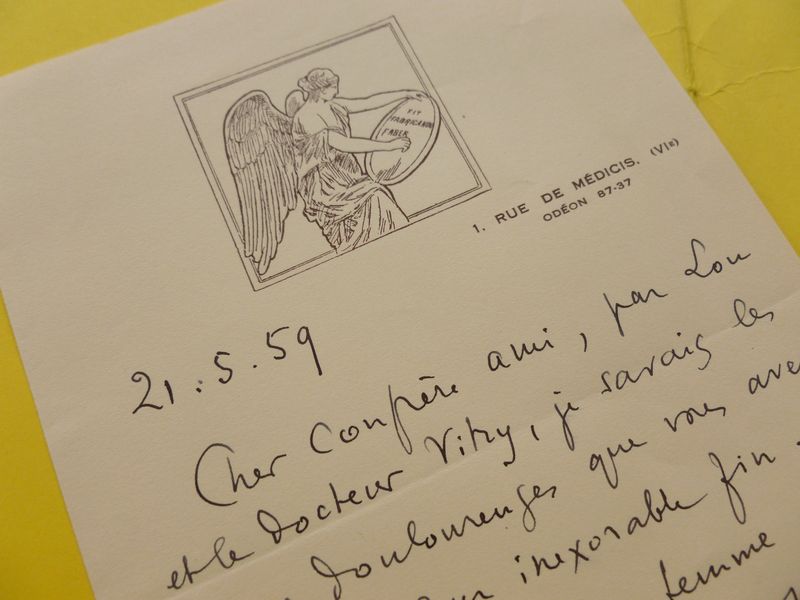 FIT
FABRICANDO
FABER
1, RUE DE MÉDICIS. (VIe)
ODÉON 87-37
21.5.59
Cher Confrère ami, par Lou
et le docteur Vitry, je savais les
douloureuses que vous ave
inexorable fin.
femme